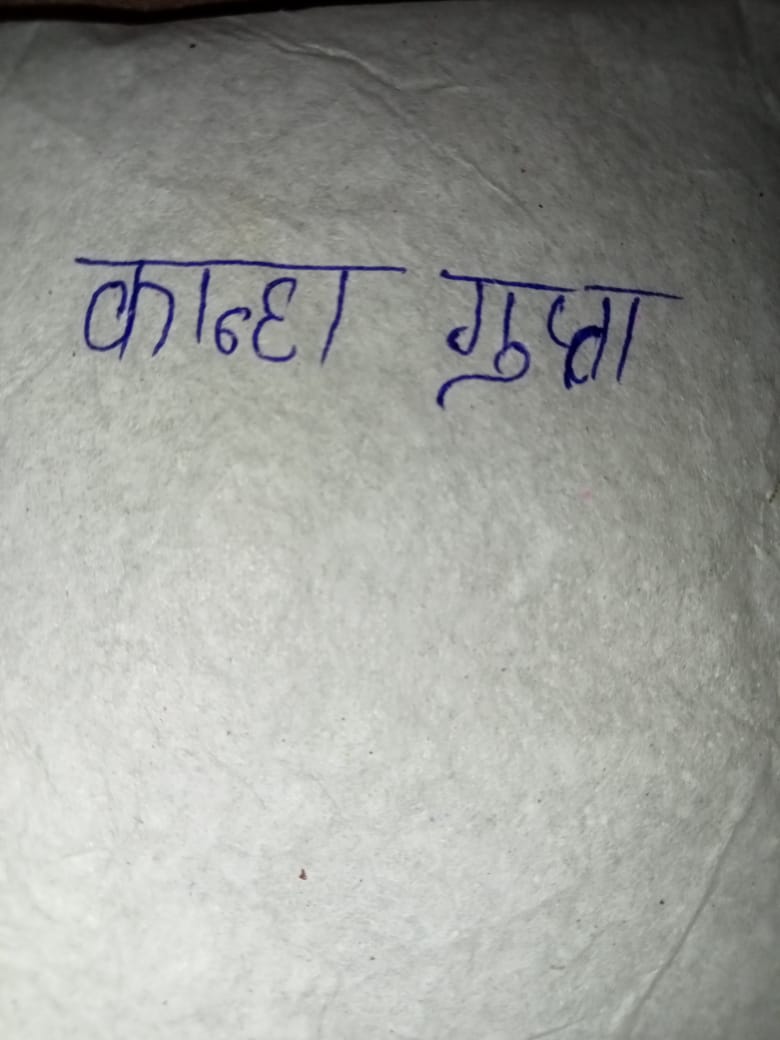 कान्हा गुप्ता